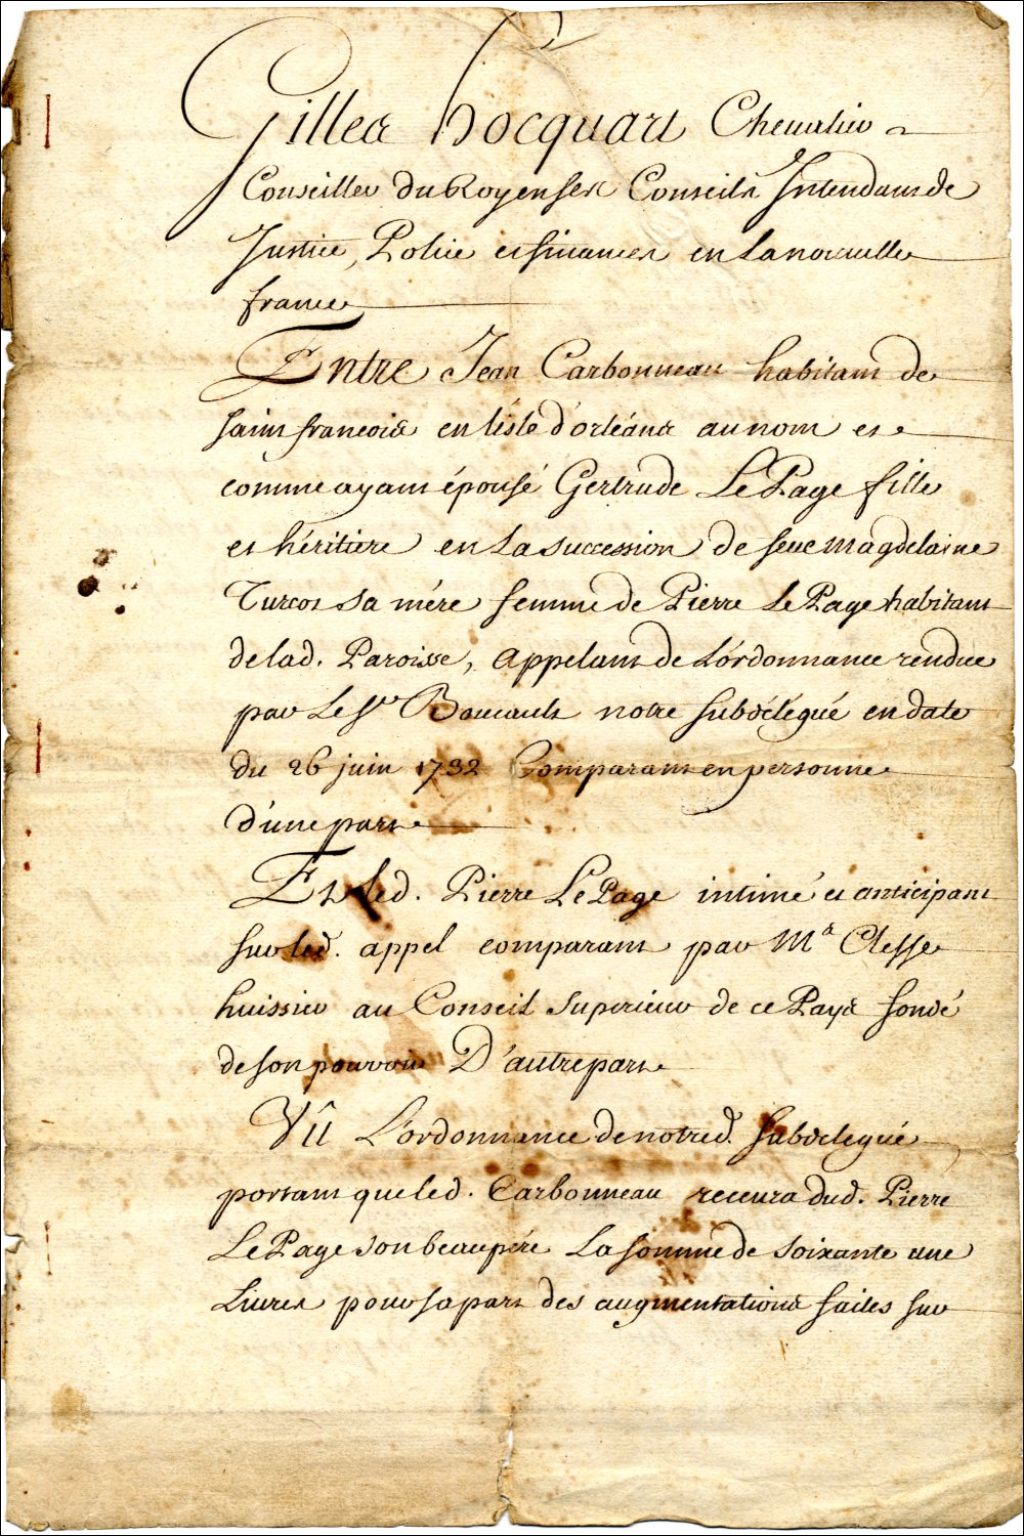 Gilles hocquart Chevalier
Conseiller du Roy en ses Conseils Intendant de
Justice, Police et finances en la nouvelle
france
Entre Jean Carbonneau habitant de
saint françois en l'isle d'orléans au nom et
comme ayant épousé Gertrude Le Page fille
et héritiere en la succession de feue Magdelaine
Turcot sa mére femme de Pierre Le Page habitant
de lad. Paroisse, appelant de L'ordonnance rendue
par le Sr Boucault notre subdélégué en date
du 26 juin 1732 Comparant en personne
d'une part
Et led. Pierre Le Page intimé et anticipant
sur led. appel comparant par Me Clesse
huissier au Conseil Superieur de ce Pays fondé
de son pouvoir D'autre part
Vû L'ordonnance de notred. subdelegué
portant que led. Carbonneau recevra dud. Pierre
Le Page son beaupére La somme de soixante une
Livres pour sa part des augmentations faites sur